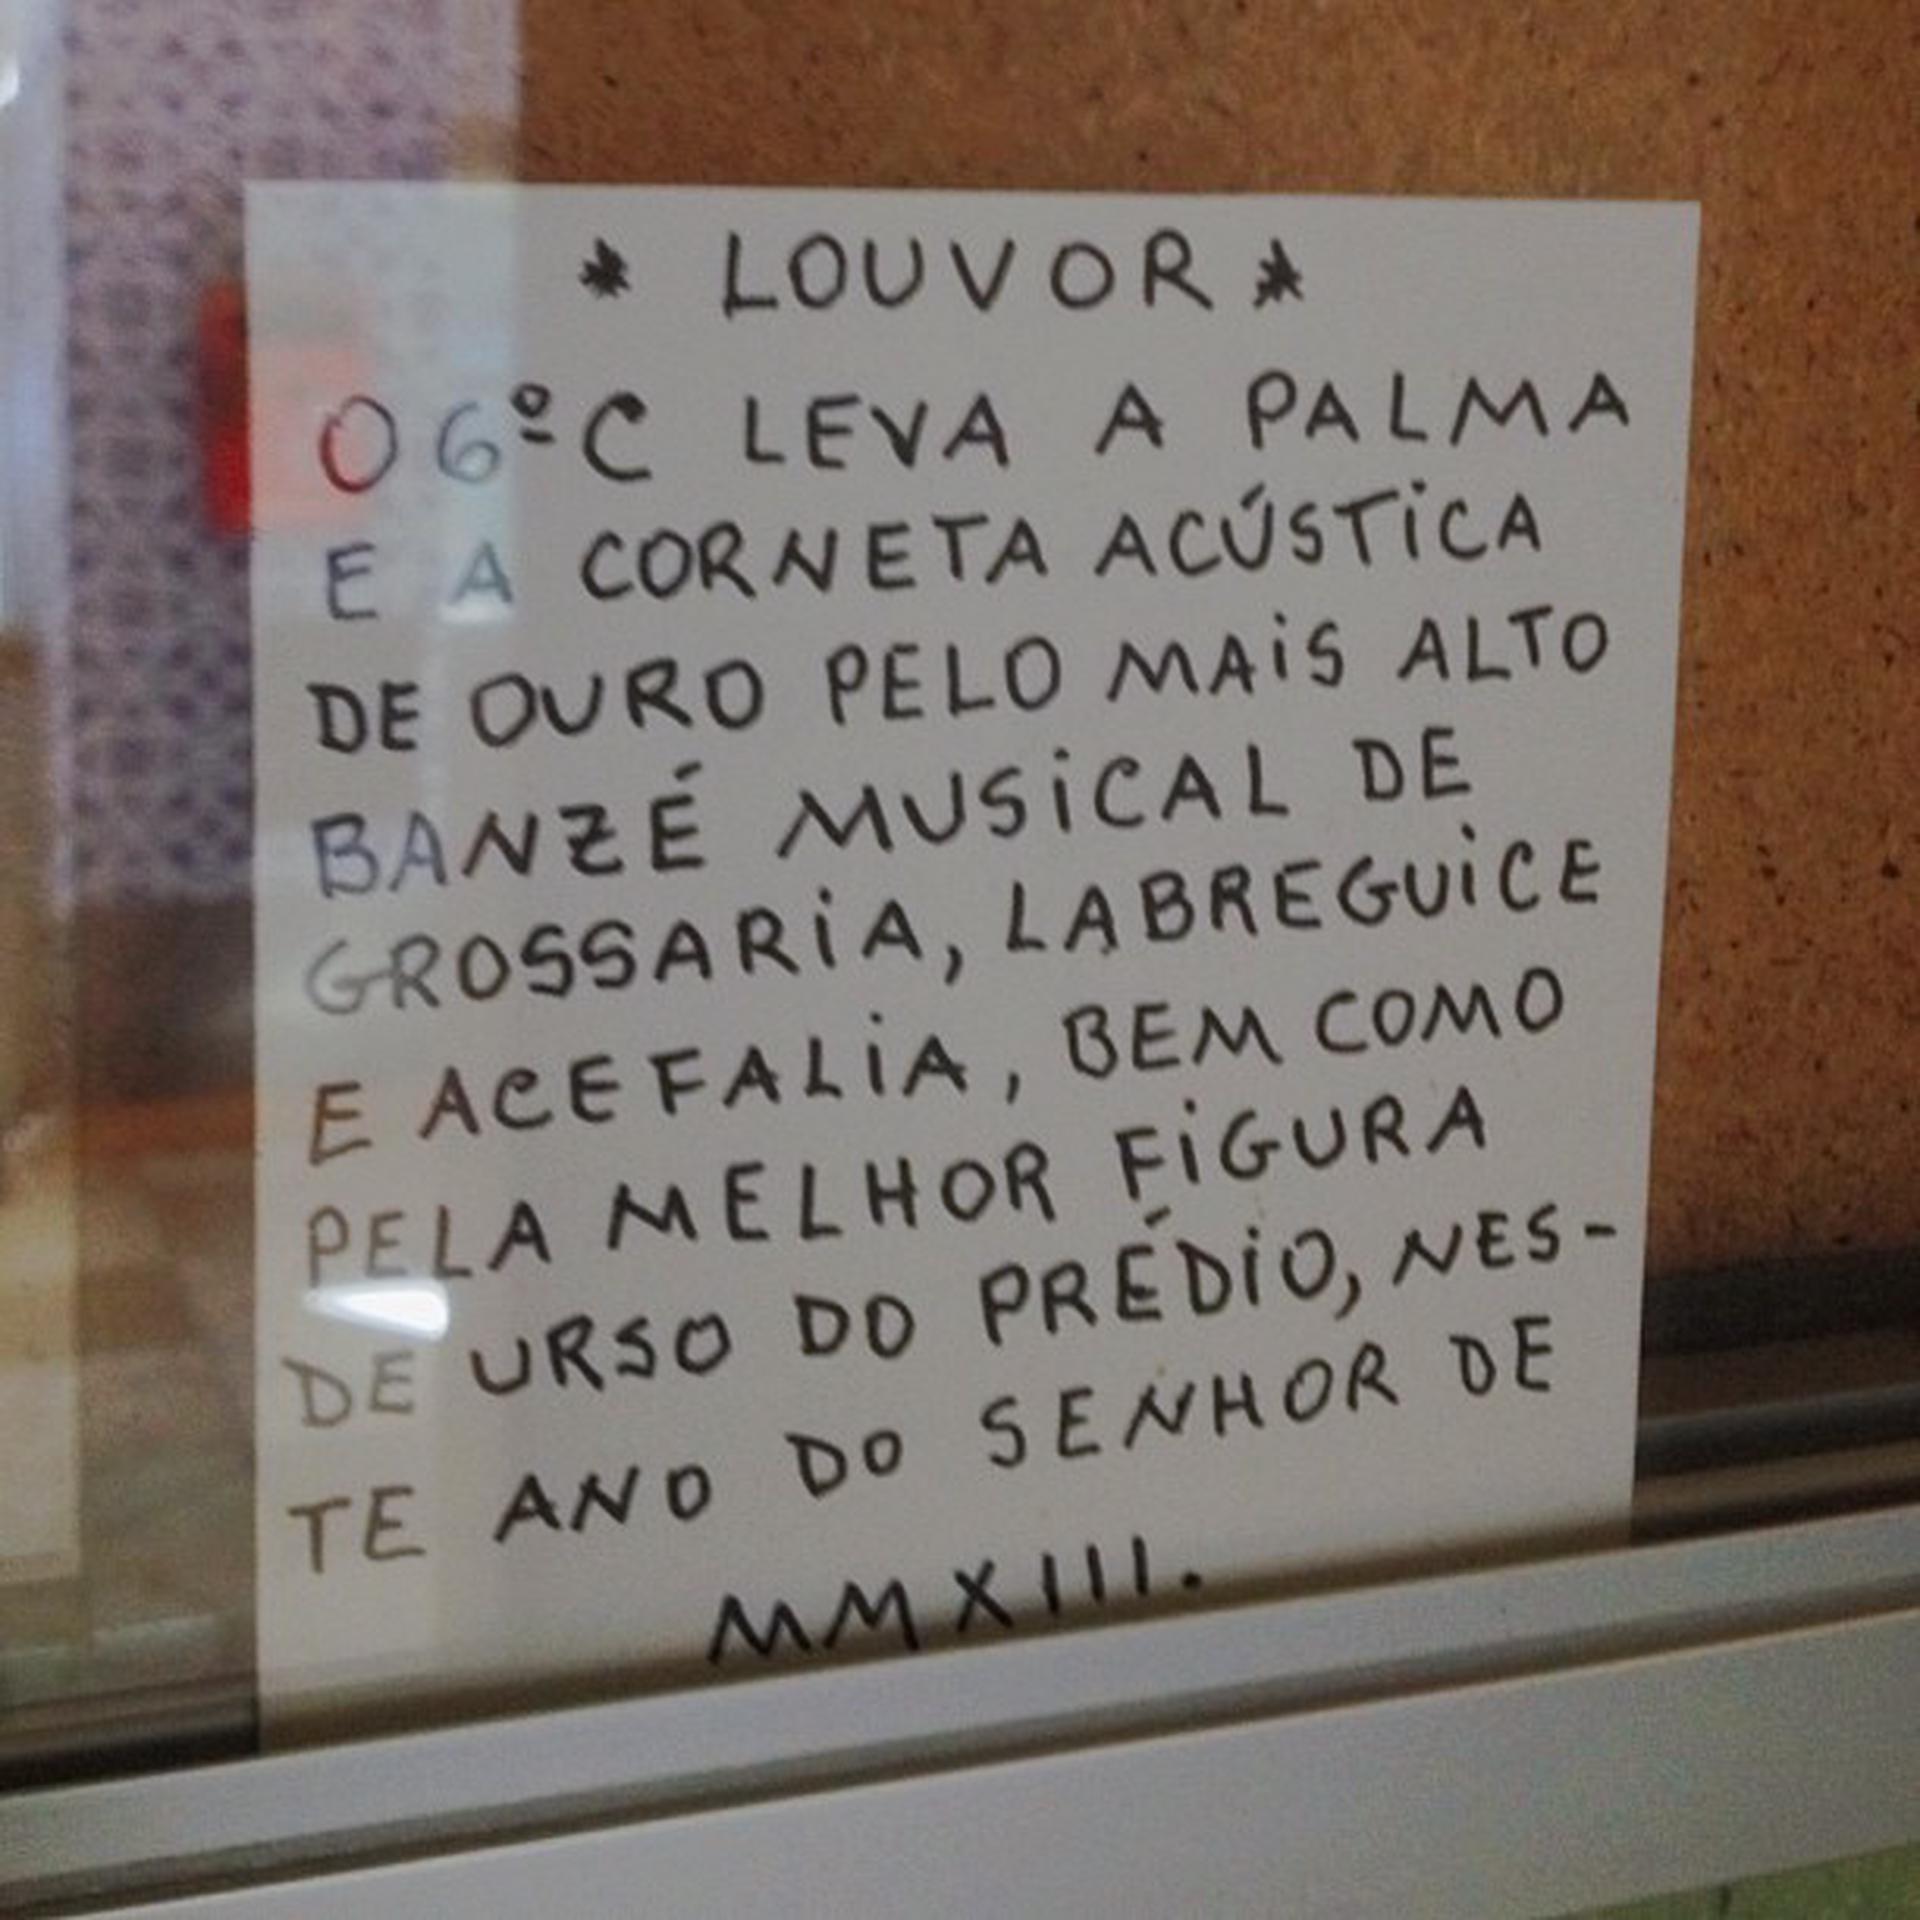 * LOUVOR *
O 6ºC LEVA A PALMA
E A CORNETA ACÚSTICA
DE OURO PELO MAIS ALTO
BANZÉ MUSICAL DE
GROSSARIA, LABREGUICE
E ACEFALIA, BEM COMO
PELA MELHOR FIGURA
DE URSO DO PRÉDIO, NES-
TE ANO DO SENHOR DE
MMXIII.